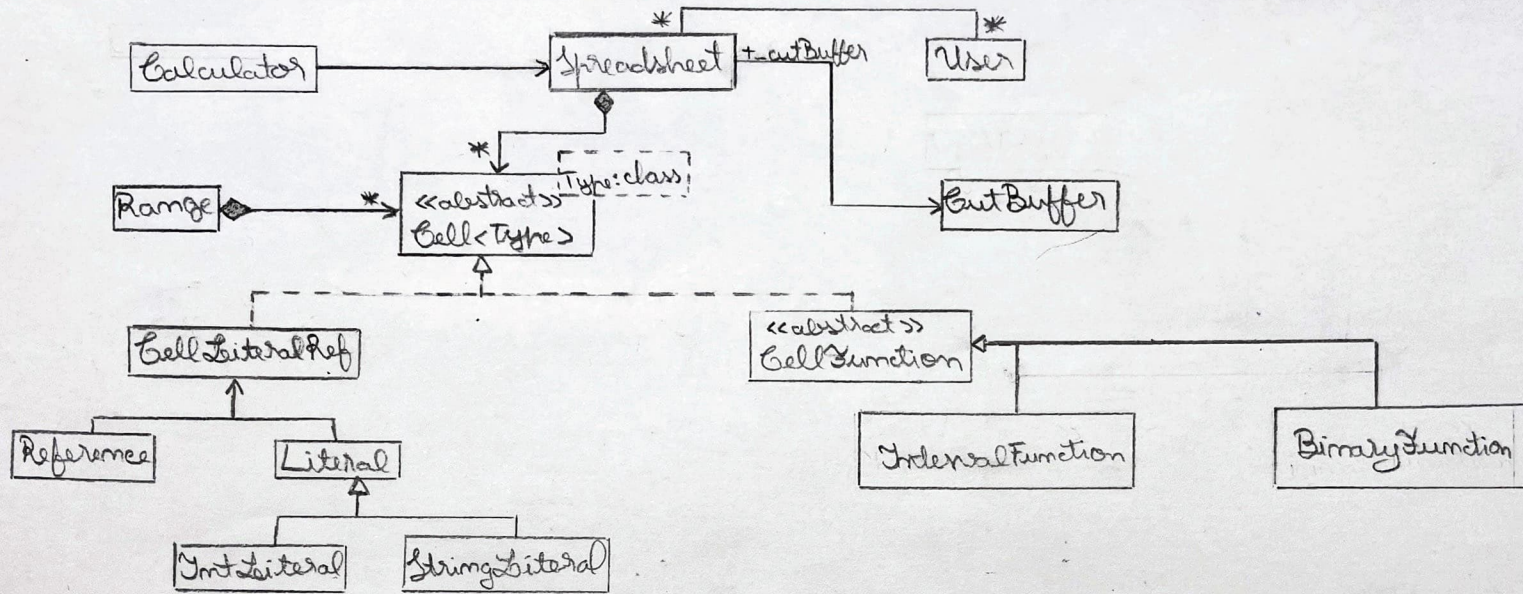 *
*
Calculator
Spreadsheet
+-cutBuffer
User
*
Type:class
Range
*
<<abstract>>
Cell<Type>
CutBuffer
CellLiteralRef
<<abstract>>
CellFunction
Reference
Literal
IntervalFunction
BinaryFunction
IntLiteral
StringLiteral